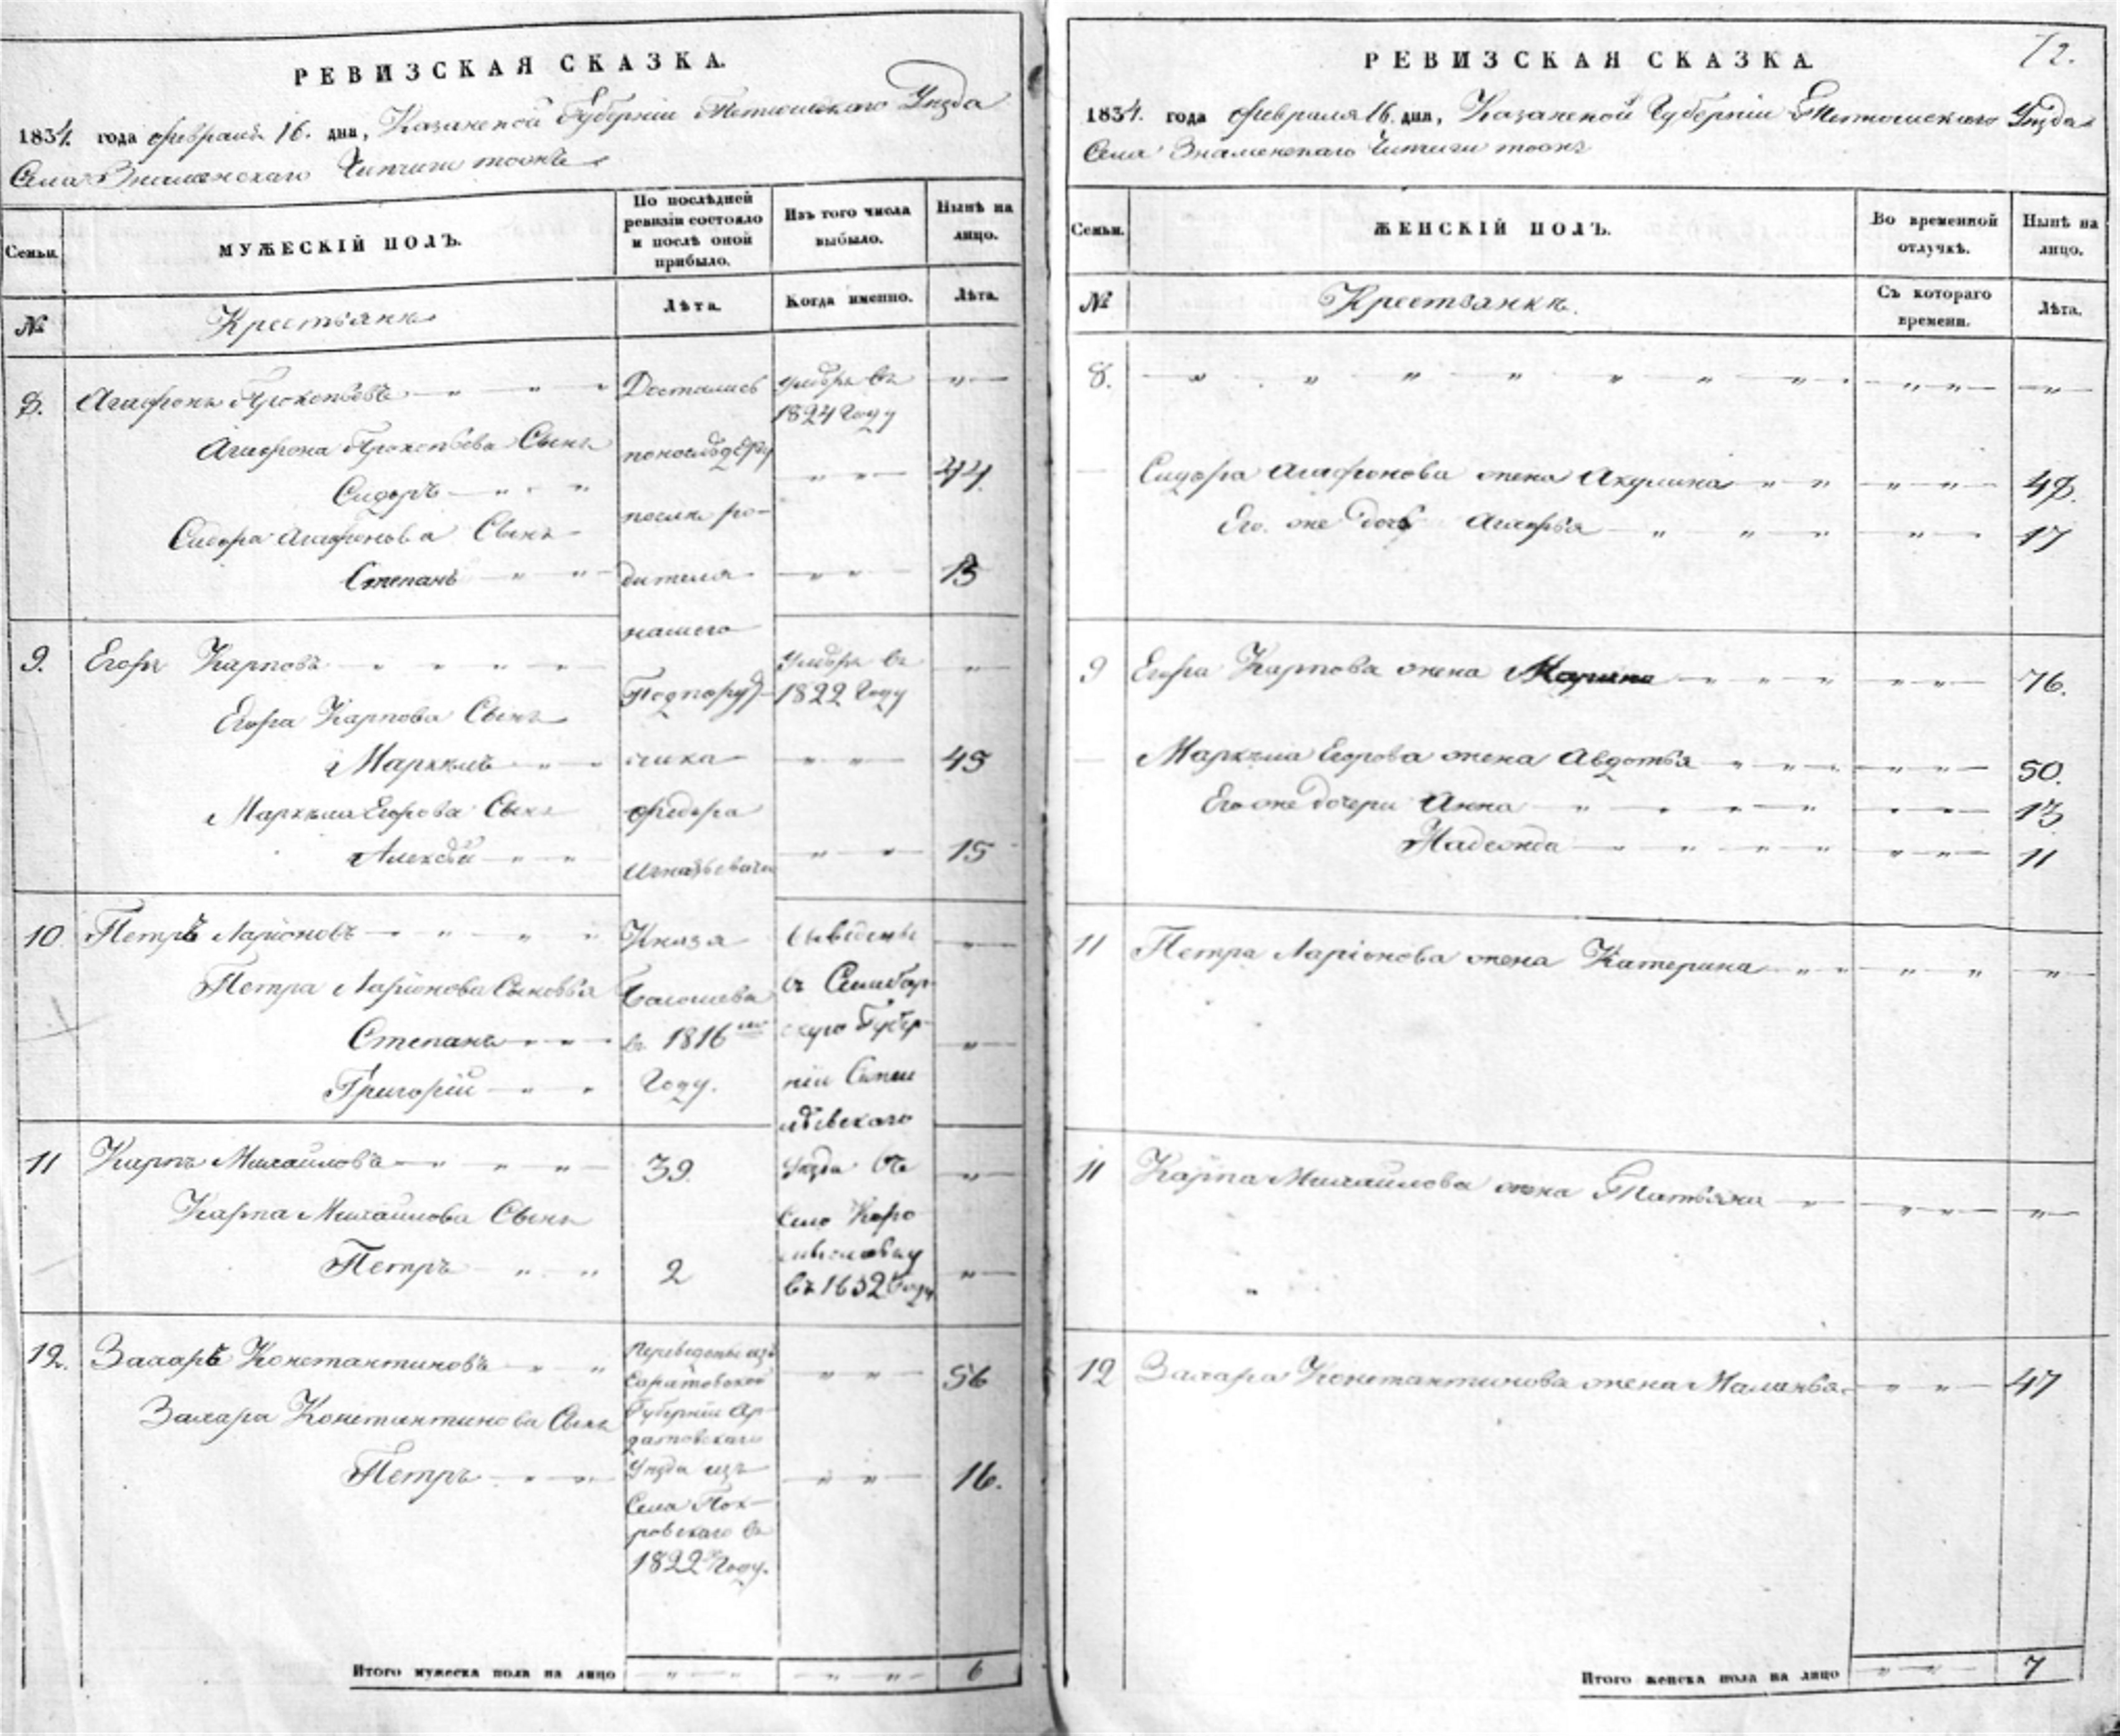 РЕВИЗСКАЯ СКАЗКА.
1834. года февраля 16. дня, Казанской Губернiи Тетюшскаго Уѣзда
Села Знаменскаго тожъ
Семьи.
МУЖЕСКIЙ ПОЛЪ.
По послѣдней ревизiи состояло и послѣ оной прибыло.
Изъ того числа выбыло.
Нынѣ на лицо.
№
Крестьяне
Лѣта.
Когда именно.
Лѣта.
8. Агафонъ Прокопьевъ — „ — „ — Достались умеръ въ „
1824 Году
Агафона Прокопьева Сынъ
Сидоръ — „ — „ „ — „ 44.
после ро-
Сидора Агафонова Сынъ
Степанъ — „ — „ дителя „ — „ 13
нашего
9. Егоръ Карповъ — „ — „ умеръ въ „
Подпору- 1822 Году
Егора Карпова Сынъ
Маркелъ — „ чика „ — „ 45
Маркела Егорова Сынъ Федора
Алексѣй — „ — „ „ — „ 15
Игнатьевича
10 Петръ Ларiоновъ — „ — „ Князя выведены „
Петра Ларiонова Сыновья въ Симбир-
Степанъ — „ въ 1816 скую Губер- „
Григорiй — „ Году. нiю
уѣзда въ
11 Карпъ Михайловъ — „ — „ 39. „
Карпа Михайлова Сынъ Село
Петръ — „ „ 2 „
въ 1832 Году
12. Захаръ Константиновъ „ „ Переведены изъ „ „ 56
Саратовской
Захара Константинова Сынъ Губернiи Ар-
датовскаго
Петръ — „ Уѣзда изъ „ „ 16.
Села Пок-
ровскаго въ
1822 Году.
Итого мужеска пола на лицо „ — „ „ — „ 6
72.
РЕВИЗСКАЯ СКАЗКА.
1834. года февраля 16. дня, Казанской Губернiи Тетюшскаго Уѣзда
Села Знаменскаго тожъ
Семьи.
ЖЕНСКIЙ ПОЛЪ.
Во временной отлучкѣ.
Нынѣ на лицо.
№
Крестьянки.
Съ котораго времени.
Лѣта.
8. „ „ „ „ „ „ „ „ „ „
Сидора Агафонова жена Акулина „ „ „ „ 48.
Его же дочь Агафья „ „ „ „ 17
9 Егора Карпова жена Марина „ „ „ „ „ 76.
Маркела Егорова жена Авдотья „ „ „ „ „ 50.
Его же дочери Анна „ „ „ „ „ „ 13
Надежда „ „ „ „ „ „ 11
11 Петра Ларiонова жена Катерина „ „ „ „ „
11 Карпа Михайлова жена Татьяна „ „ „ „
12 Захара Константинова жена Маланья „ „ 47
Итого женска пола на лицо „ „ 7